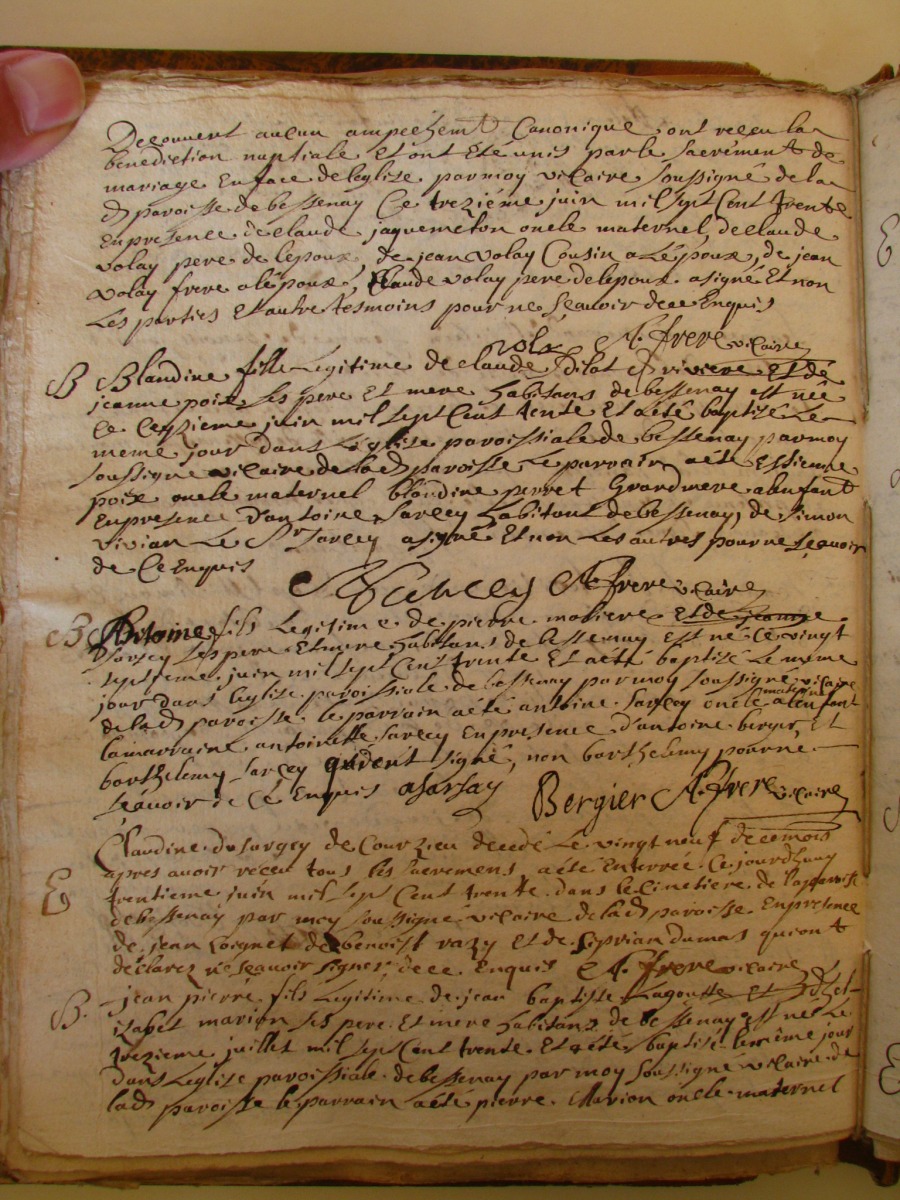 Decouvert aucun ampeêhemt Canonique ont receu la
benediction nuptiale Et ont Eté unis par le sacrément de
mariage En face de leglise par moy vicaire soussigné de la
d paroisse de bessenay Ce trezième juin mil sept Cent trente
En presence de claude jaquemeton oncle maternel, de claude
volay pere de lepoux de jean volay Cousin a Lépoux, de jean
volay frere a lépoux, Claude volay pere de lepoux a signé Et non
Les parties Et autre tesmoins pour ne sçauoir de ce Enquis
vola A. frere vicaire
B Blandine fille Legitime de claude pilot d riviere Et de
jeanne poix ses pere Et mere habitans de bessenay est née
le juin mil sept Cent trente Et a été baptizé Le
meme jour dans L'eglise paroissiale de bessenay par moy
soussigné vicaire de lad paroisse Le parrain a été Estienne
poix oncle maternel blandine perret Grandmere a lenfant
En presence d'antoine Sarcey habitant de bessenay, de simon
vivian Le Sr Sarcey a signé Et non Les autres pour ne sçauoir
de Ce Enquis
Sarcey A. frere vicaire
B Antoine fils Legitime de pierre moliere Et de jeanne
Sarcey ses pere Et mere habitans de bessenay Est né Ce vingt
septieme juin mil sept Cent trente Et a été baptizé Le meme
jour dans leglise paroissiale de bessenay par moy soussigné vicaire
de lad paroisse le parrain a été antoine Sarcey oncle maternel a lenfant
la marraine antoinette Sarcey En presence d'antoine berger, Et
barthelemy Sarcey qui ont signé, non barthelemy pour ne
sçauoir de Ce Enquis a sarsay Bergier A. frere vicaire
Claudine du sargey de Courzieu decedé Le vingt neuf de ce mois
apres auoir receu tous les sacremens a été Enterrée Ce jourdhuy
E trentieme juin mil sept Cent trente dans le cimetiere de la paroisse
de bessenay par moy soussigné vicaire de lad paroisse En presence
de jean coignet de benoist razy Et de siprian dumas qui ont
declarez ne sçauoir signer de ce Enquis A. frere vicaire
B. jean pierre fils Legitime de jean baptiste Lagoutte Et d
izabet marion ses pere Et mere habitans de bessenay est né Le
trezieme juillet mil sept Cent trente Et a été baptisé le même jour
dans L'eglise paroissiale de bessenay par moy soussigné vicaire de
lad paroisse le parrain a été pierre Marion oncle maternel